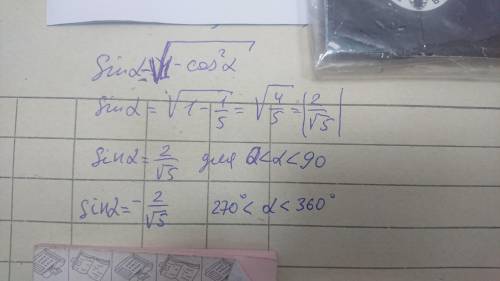 Sinα = √1 - cos²α
Sinα = √1 - 1/5 = √4/5 = |2/√5|
Sinα = 2/√5 для 0<α<90
Sinα = - 2/√5 270° < α < 360°